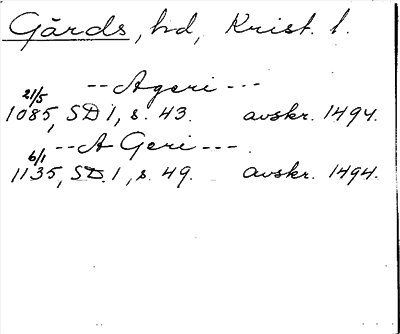 Gärds, hd, Krist. l.
--Ageri---
21/5
1085, SD 1, s. 43. avskr. 1494.
6/1 --A Geri---.
1135, SD. 1, s. 49. avskr. 1494.